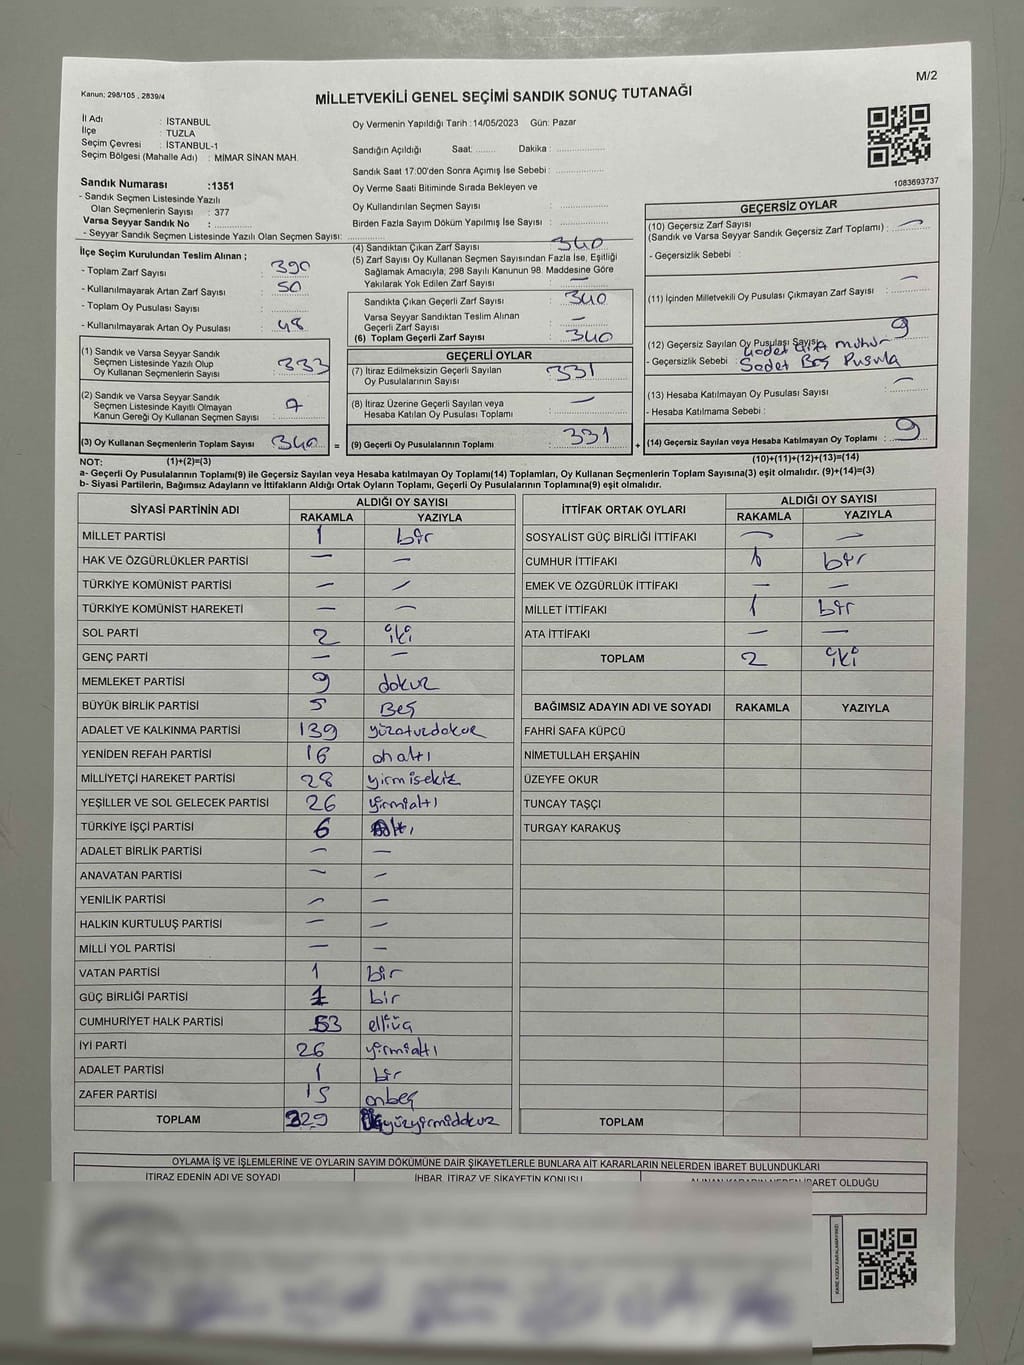 M/2
Kanun: 298/105 , 2839/4
MİLLETVEKİLİ GENEL SEÇİMİ SANDIK SONUÇ TUTANAĞI
İl Adı : İSTANBUL
İlçe : TUZLA
Seçim Çevresi : İSTANBUL-1
Seçim Bölgesi (Mahalle Adı) : MİMAR SİNAN MAH.
Sandık Numarası :1351
- Sandık Seçmen Listesinde Yazılı
Olan Seçmenlerin Sayısı : 377
Varsa Seyyar Sandık No :
- Seyyar Sandık Seçmen Listesinde Yazılı Olan Seçmen Sayısı:
Oy Vermenin Yapıldığı Tarih : 14/05/2023 Gün: Pazar
Sandığın Açıldığı Saat: ........ Dakika : ................
Sandık Saat 17:00'den Sonra Açımış İse Sebebi : ................
Oy Verme Saati Bitiminde Sırada Bekleyen ve
Oy Kullandırılan Seçmen Sayısı : ................
Birden Fazla Sayım Döküm Yapılmış İse Sayısı : ................
1083693737
İlçe Seçim Kurulundan Teslim Alınan ;
- Toplam Zarf Sayısı : 390
- Kullanılmayarak Artan Zarf Sayısı : 50
- Toplam Oy Pusulası Sayısı :
- Kullanılmayarak Artan Oy Pusulası : 48
(1) Sandık ve Varsa Seyyar Sandık
Seçmen Listesinde Yazılı Olup
Oy Kullanan Seçmenlerin Sayısı : 333
(2) Sandık ve Varsa Seyyar Sandık
Seçmen Listesinde Kayıtlı Olmayan
Kanun Gereği Oy Kullanan Seçmen Sayısı : 7
(3) Oy Kullanan Seçmenlerin Toplam Sayısı : 340 =
(1)+(2)=(3)
(4) Sandıktan Çıkan Zarf Sayısı : 340
(5) Zarf Sayısı Oy Kullanan Seçmen Sayısından Fazla İse, Eşitliği
Sağlamak Amacıyla, 298 Sayılı Kanunun 98. Maddesine Göre
Yakılarak Yok Edilen Zarf Sayısı : —
Sandıkta Çıkan Geçerli Zarf Sayısı : 340
Varsa Seyyar Sandıktan Teslim Alınan
Geçerli Zarf Sayısı : —
(6) Toplam Geçerli Zarf Sayısı : 340
GEÇERLİ OYLAR
(7) İtiraz Edilmeksizin Geçerli Sayılan
Oy Pusulalarının Sayısı : 331
(8) İtiraz Üzerine Geçerli Sayılan veya
Hesaba Katılan Oy Pusulası Toplamı : —
(9) Geçerli Oy Pusulalarının Toplamı : 331 +
GEÇERSİZ OYLAR
(10) Geçersiz Zarf Sayısı
(Sandık ve Varsa Seyyar Sandık Geçersiz Zarf Toplamı) : —
- Geçersizlik Sebebi :
(11) İçinden Milletvekili Oy Pusulası Çıkmayan Zarf Sayısı : —
(12) Geçersiz Sayılan Oy Pusulası Sayısı 9
- Geçersizlik Sebebi : 4 adet çift mühür
5 adet Boş Pusula
(13) Hesaba Katılmayan Oy Pusulası Sayısı : —
- Hesaba Katılmama Sebebi :
(14) Geçersiz Sayılan veya Hesaba Katılmayan Oy Toplamı : 9
(10)+(11)+(12)+(13)=(14)
NOT:
a- Geçerli Oy Pusulalarının Toplamı(9) ile Geçersiz Sayılan veya Hesaba katılmayan Oy Toplamı(14) Toplamları, Oy Kullanan Seçmenlerin Toplam Sayısına(3) eşit olmalıdır. (9)+(14)=(3)
b- Siyasi Partilerin, Bağımsız Adayların ve İttifakların Aldığı Ortak Oyların Toplamı, Geçerli Oy Pusulalarının Toplamına(9) eşit olmalıdır.
SİYASİ PARTİNİN ADI ALDIĞI OY SAYISI
RAKAMLA YAZIYLA
MİLLET PARTİSİ 1 bir
HAK VE ÖZGÜRLÜKLER PARTİSİ — —
TÜRKİYE KOMÜNİST PARTİSİ — —
TÜRKİYE KOMÜNİST HAREKETİ — —
SOL PARTİ 2 iki
GENÇ PARTİ — —
MEMLEKET PARTİSİ 9 dokuz
BÜYÜK BİRLİK PARTİSİ 5 Beş
ADALET VE KALKINMA PARTİSİ 139 yüzotuzdokuz
YENİDEN REFAH PARTİSİ 16 onaltı
MİLLİYETÇİ HAREKET PARTİSİ 28 yirmisekiz
YEŞİLLER VE SOL GELECEK PARTİSİ 26 yirmialtı
TÜRKİYE İŞÇİ PARTİSİ 6 altı
ADALET BİRLİK PARTİSİ — —
ANAVATAN PARTİSİ — —
YENİLİK PARTİSİ — —
HALKIN KURTULUŞ PARTİSİ — —
MİLLİ YOL PARTİSİ — —
VATAN PARTİSİ 1 bir
GÜÇ BİRLİĞİ PARTİSİ 1 bir
CUMHURİYET HALK PARTİSİ 53 elliüç
İYİ PARTİ 26 yirmialtı
ADALET PARTİSİ 1 bir
ZAFER PARTİSİ 15 onbeş
TOPLAM 329 üçyüzyirmidokuz
İTTİFAK ORTAK OYLARI ALDIĞI OY SAYISI
RAKAMLA YAZIYLA
SOSYALİST GÜÇ BİRLİĞİ İTTİFAKI — —
CUMHUR İTTİFAKI 1 bir
EMEK VE ÖZGÜRLÜK İTTİFAKI — —
MİLLET İTTİFAKI 1 bir
ATA İTTİFAKI — —
TOPLAM 2 iki
BAĞIMSIZ ADAYIN ADI VE SOYADI RAKAMLA YAZIYLA
FAHRİ SAFA KÜPCÜ
NİMETULLAH ERŞAHİN
ÜZEYFE OKUR
TUNCAY TAŞÇI
TURGAY KARAKUŞ
TOPLAM
OYLAMA İŞ VE İŞLEMLERİNE VE OYLARIN SAYIM DÖKÜMÜNE DAİR ŞİKAYETLERLE BUNLARA AİT KARARLARIN NELERDEN İBARET BULUNDUKLARI
İTİRAZ EDENİN ADI VE SOYADI İHBAR, İTİRAZ VE ŞİKAYETİN KONUSU ALINAN KARARIN NEDEN İBARET OLDUĞU